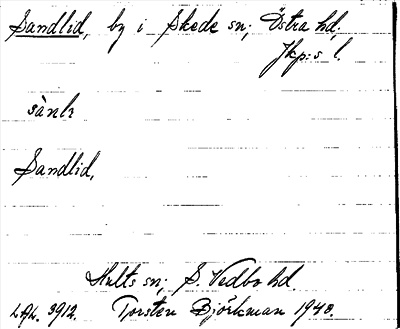 Sandlid, by i Skede sn; Östra hd;
Jkp:s l.
sànlı
Sandlid,
Hults sn; S. Vedbo hd.
L.A.L. 3912. Torsten Björkman 1940.